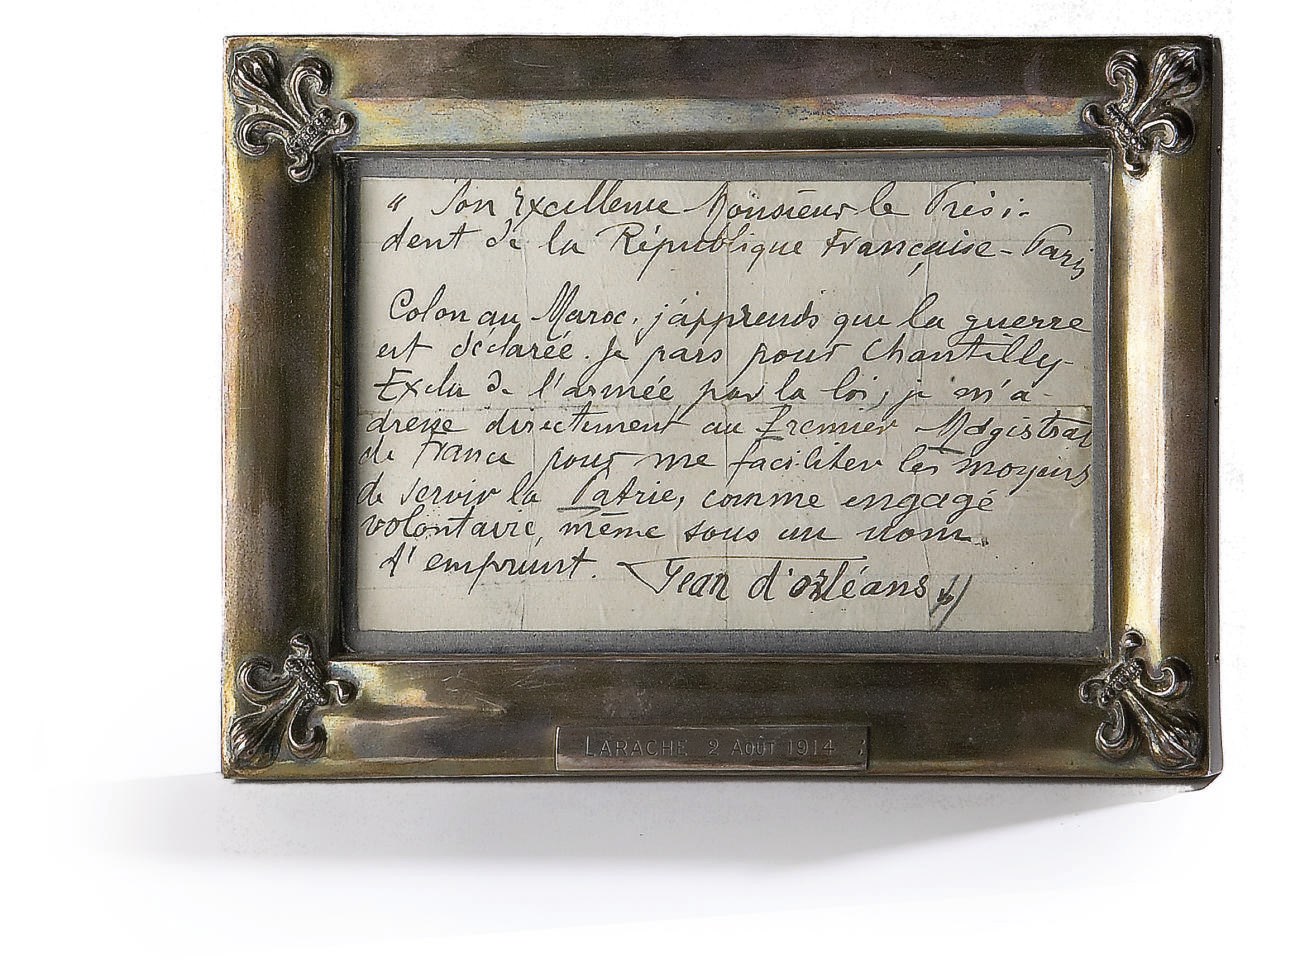 " Son Excellence Monsieur le Prési-
dent de la République Française - Paris
Colon au Maroc, j'apprends que la guerre
est déclarée. Je pars pour Chantilly-
Exclu de l'armée par la loi, je m'a-
dresse directement au Premier Magistrat
de France pour me faciliter les moyens
de servir la Patrie, comme engagé
volontaire, même sous un nom
d'emprunt. Jean d'orléans "
LARACHE 2 AOÛT 1914